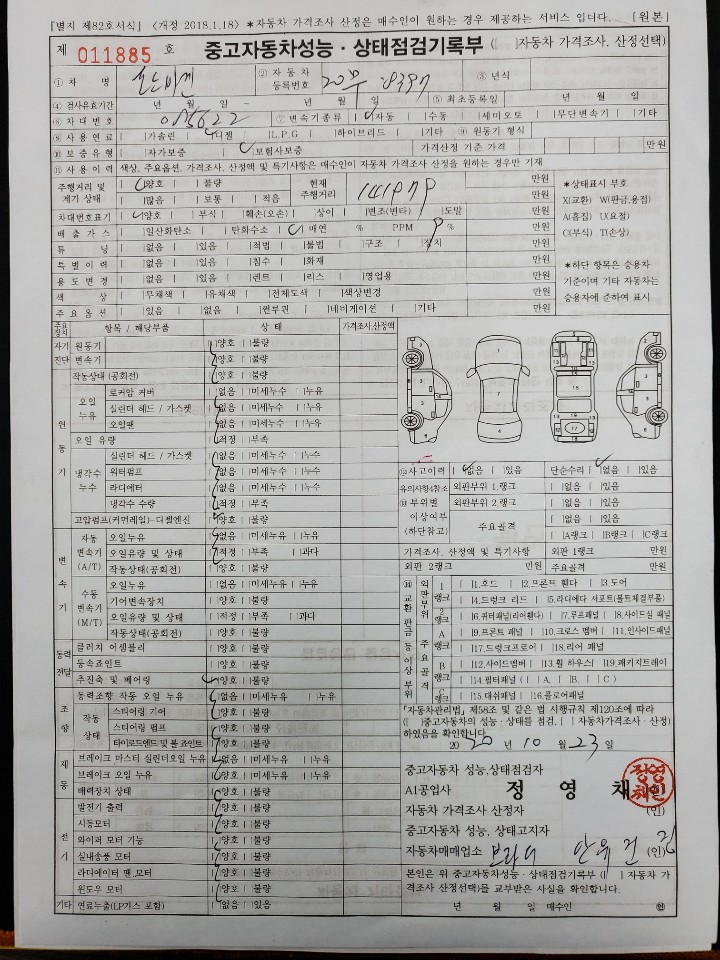 [별지 제82호서식] 〈개정 2018.1.18〉 *자동차 가격조사 산정은 매수인이 원하는 경우 제공하는 서비스 입니다. [원본]
제 011885 호 중고자동차성능·상태점검기록부([ ]자동차 가격조사. 산정선택)
① 차 명 ② 자동차 등록번호 ③ 년식
④ 검사유효기간 년 월 일 ~ 년 월 일 ⑤ 최초등록일 년 월 일
⑥ 차대번호 085622 ⑦ 변속기종류 [ ]자동 [ ]수동 [ ]세미오토 [ ]무단변속기 [ ]기타
⑧ 사용연료 [ ]가솔린 [ ]디젤 [ ]L.P.G [ ]하이브리드 [ ]기타 ⑨ 원동기 형식
⑩ 보증유형 [ ]자가보증 [ ]보험사보증 가격산정 기준 가격 만원
⑪ 사용이력 색상, 주요옵션, 가격조사, 산정액 및 특기사항은 매수인이 자동차 가격조사 산정을 원하는 경우만 기재
주행거리 및 계기 상태 [ ]양호 [ ]불량 현재 주행거리 만원
[ ]많음 [ ]보통 [ ]적음 만원
차대번호표기 [ ]양호 [ ]부식 [ ]훼손(오손) [ ]상이 [ ]변조(변타) [ ]도말 만원
배출가스 [ ]일산화탄소 [ ]탄화수소 [ ]매연 % PPM % 만원
튜닝 [ ]없음 [ ]있음 [ ]적법 [ ]불법 [ ]구조 [ ]장치 만원
특별이력 [ ]없음 [ ]있음 [ ]침수 [ ]화재 만원
용도변경 [ ]없음 [ ]있음 [ ]렌트 [ ]리스 [ ]영업용 만원
색상 [ ]무채색 [ ]유채색 [ ]전체도색 [ ]색상변경 만원
주요옵션 [ ]있음 [ ]없음 [ ]썬루프 [ ]네비게이션 [ ]기타 만원
*상태표시 부호
X(교환) W(판금,용접)
A(흠집) U(요철)
C(부식) T(손상)
*하단 항목은 승용차
기준이며 기타 자동차는
승용차에 준하여 표시
주요장치 항목 / 해당부품 상 태 가격조사,산정액
자기진단 원동기 [ ]양호 [ ]불량
변속기 [ ]양호 [ ]불량
원동기 작동상태 (공회전) [ ]양호 [ ]불량
오일누유 로커암 커버 [ ]없음 [ ]미세누수 [ ]누유
실린더 헤드 / 가스켓 [ ]없음 [ ]미세누수 [ ]누유
오일팬 [ ]없음 [ ]미세누수 [ ]누유
오일 유량 [ ]적정 [ ]부족
냉각수 누수 실린더 헤드 / 가스켓 [ ]없음 [ ]미세누수 [ ]누수
워터펌프 [ ]없음 [ ]미세누수 [ ]누수
라디에터 [ ]없음 [ ]미세누수 [ ]누수
냉각수 수량 [ ]적정 [ ]부족
고압펌프(커먼레일)-디젤엔진 [ ]양호 [ ]불량
변속기 자동변속기 (A/T) 오일누유 [ ]없음 [ ]미세누유 [ ]누유
오일유량 및 상태 [ ]적정 [ ]부족 [ ]과다
작동상태(공회전) [ ]양호 [ ]불량
수동변속기 (M/T) 오일누유 [ ]없음 [ ]미세누유 [ ]누유
기어변속장치 [ ]양호 [ ]불량
오일유량 및 상태 [ ]적정 [ ]부족 [ ]과다
작동상태(공회전) [ ]양호 [ ]불량
동력전달 클러치 어셈블리 [ ]양호 [ ]불량
등속죠인트 [ ]양호 [ ]불량
추진축 및 베어링 [ ]양호 [ ]불량
조향 동력조향 작동 오일 누유 [ ]없음 [ ]미세누유 [ ]누유
작동상태 스티어링 기어 [ ]양호 [ ]불량
스티어링 펌프 [ ]양호 [ ]불량
타이로드엔드 및 볼 죠인트 [ ]양호 [ ]불량
제동 브레이크 마스터 실린더오일 누유 [ ]없음 [ ]미세누유 [ ]누유
브레이크 오일 누유 [ ]없음 [ ]미세누유 [ ]누유
배력장치 상태 [ ]양호 [ ]불량
전기 발전기 출력 [ ]양호 [ ]불량
시동모터 [ ]양호 [ ]불량
와이퍼 모터 기능 [ ]양호 [ ]불량
실내송풍 모터 [ ]양호 [ ]불량
라디에이터 팬 모터 [ ]양호 [ ]불량
윈도우 모터 [ ]양호 [ ]불량
기타 연료누출(LP가스 포함) [ ]없음 [ ]있음
⑫사고이력 [ ]없음 [ ]있음 단순수리 [ ]없음 [ ]있음
유의사항4참조 외판부위 1.랭크 [ ]없음 [ ]있음
⑬ 부위별 이상여부 (하단참고) 외판부위 2.랭크 [ ]없음 [ ]있음
주요골격 [ ]없음 [ ]있음
[ ]A랭크 [ ]B랭크 [ ]C랭크
가격조사. 산정액 및 특기사항 외판 1랭크 만원
외판 2랭크 만원 주요골격 만원
⑭ 교환 판금 등 이상 부위 외판부위 1랭크 [ ]1.후드 [ ]2.프론트 휀다 [ ]3.도어
[ ]4.트렁크 리드 [ ]5.라디에다 서포트(볼트체결부품)
2랭크 [ ]6.쿼터패널(리어휀다) [ ]7.루프패널 [ ]8.사이드실 패널
주요골격 A랭크 [ ]9.프론트 패널 [ ]10.크로스 멤버 [ ]11.인사이드패널
[ ]17.트렁크프로어 [ ]18.리어 패널
B랭크 [ ]12.사이드멤버 [ ]13.휠 하우스 [ ]19.패키지트레이
[ ]14.필터패널([ ]A, [ ]B, [ ]C)
C랭크 [ ]15.대쉬패널 [ ]16.플로어패널
「자동차관리법」제58조 및 같은 법 시행규칙 제120조에 따라
([ ]중고자동차의 성능·상태를 점검, [ ]자동차가격조사·산정)
하였음을 확인합니다.
20 20 년 10 월 23 일
중고자동차 성능,상태점검자
A1공업사 정 영 채 (인)
자동차 가격조사 산정자 (인)
중고자동차 성능, 상태고지자
자동차매매업소 (인)
본인은 위 중고자동차성능·상태점검기록부 ([ ]자동차 가
격조사 산정선택)를 교부받은 사실을 확인합니다.
년 월 일 매수인 ㊞